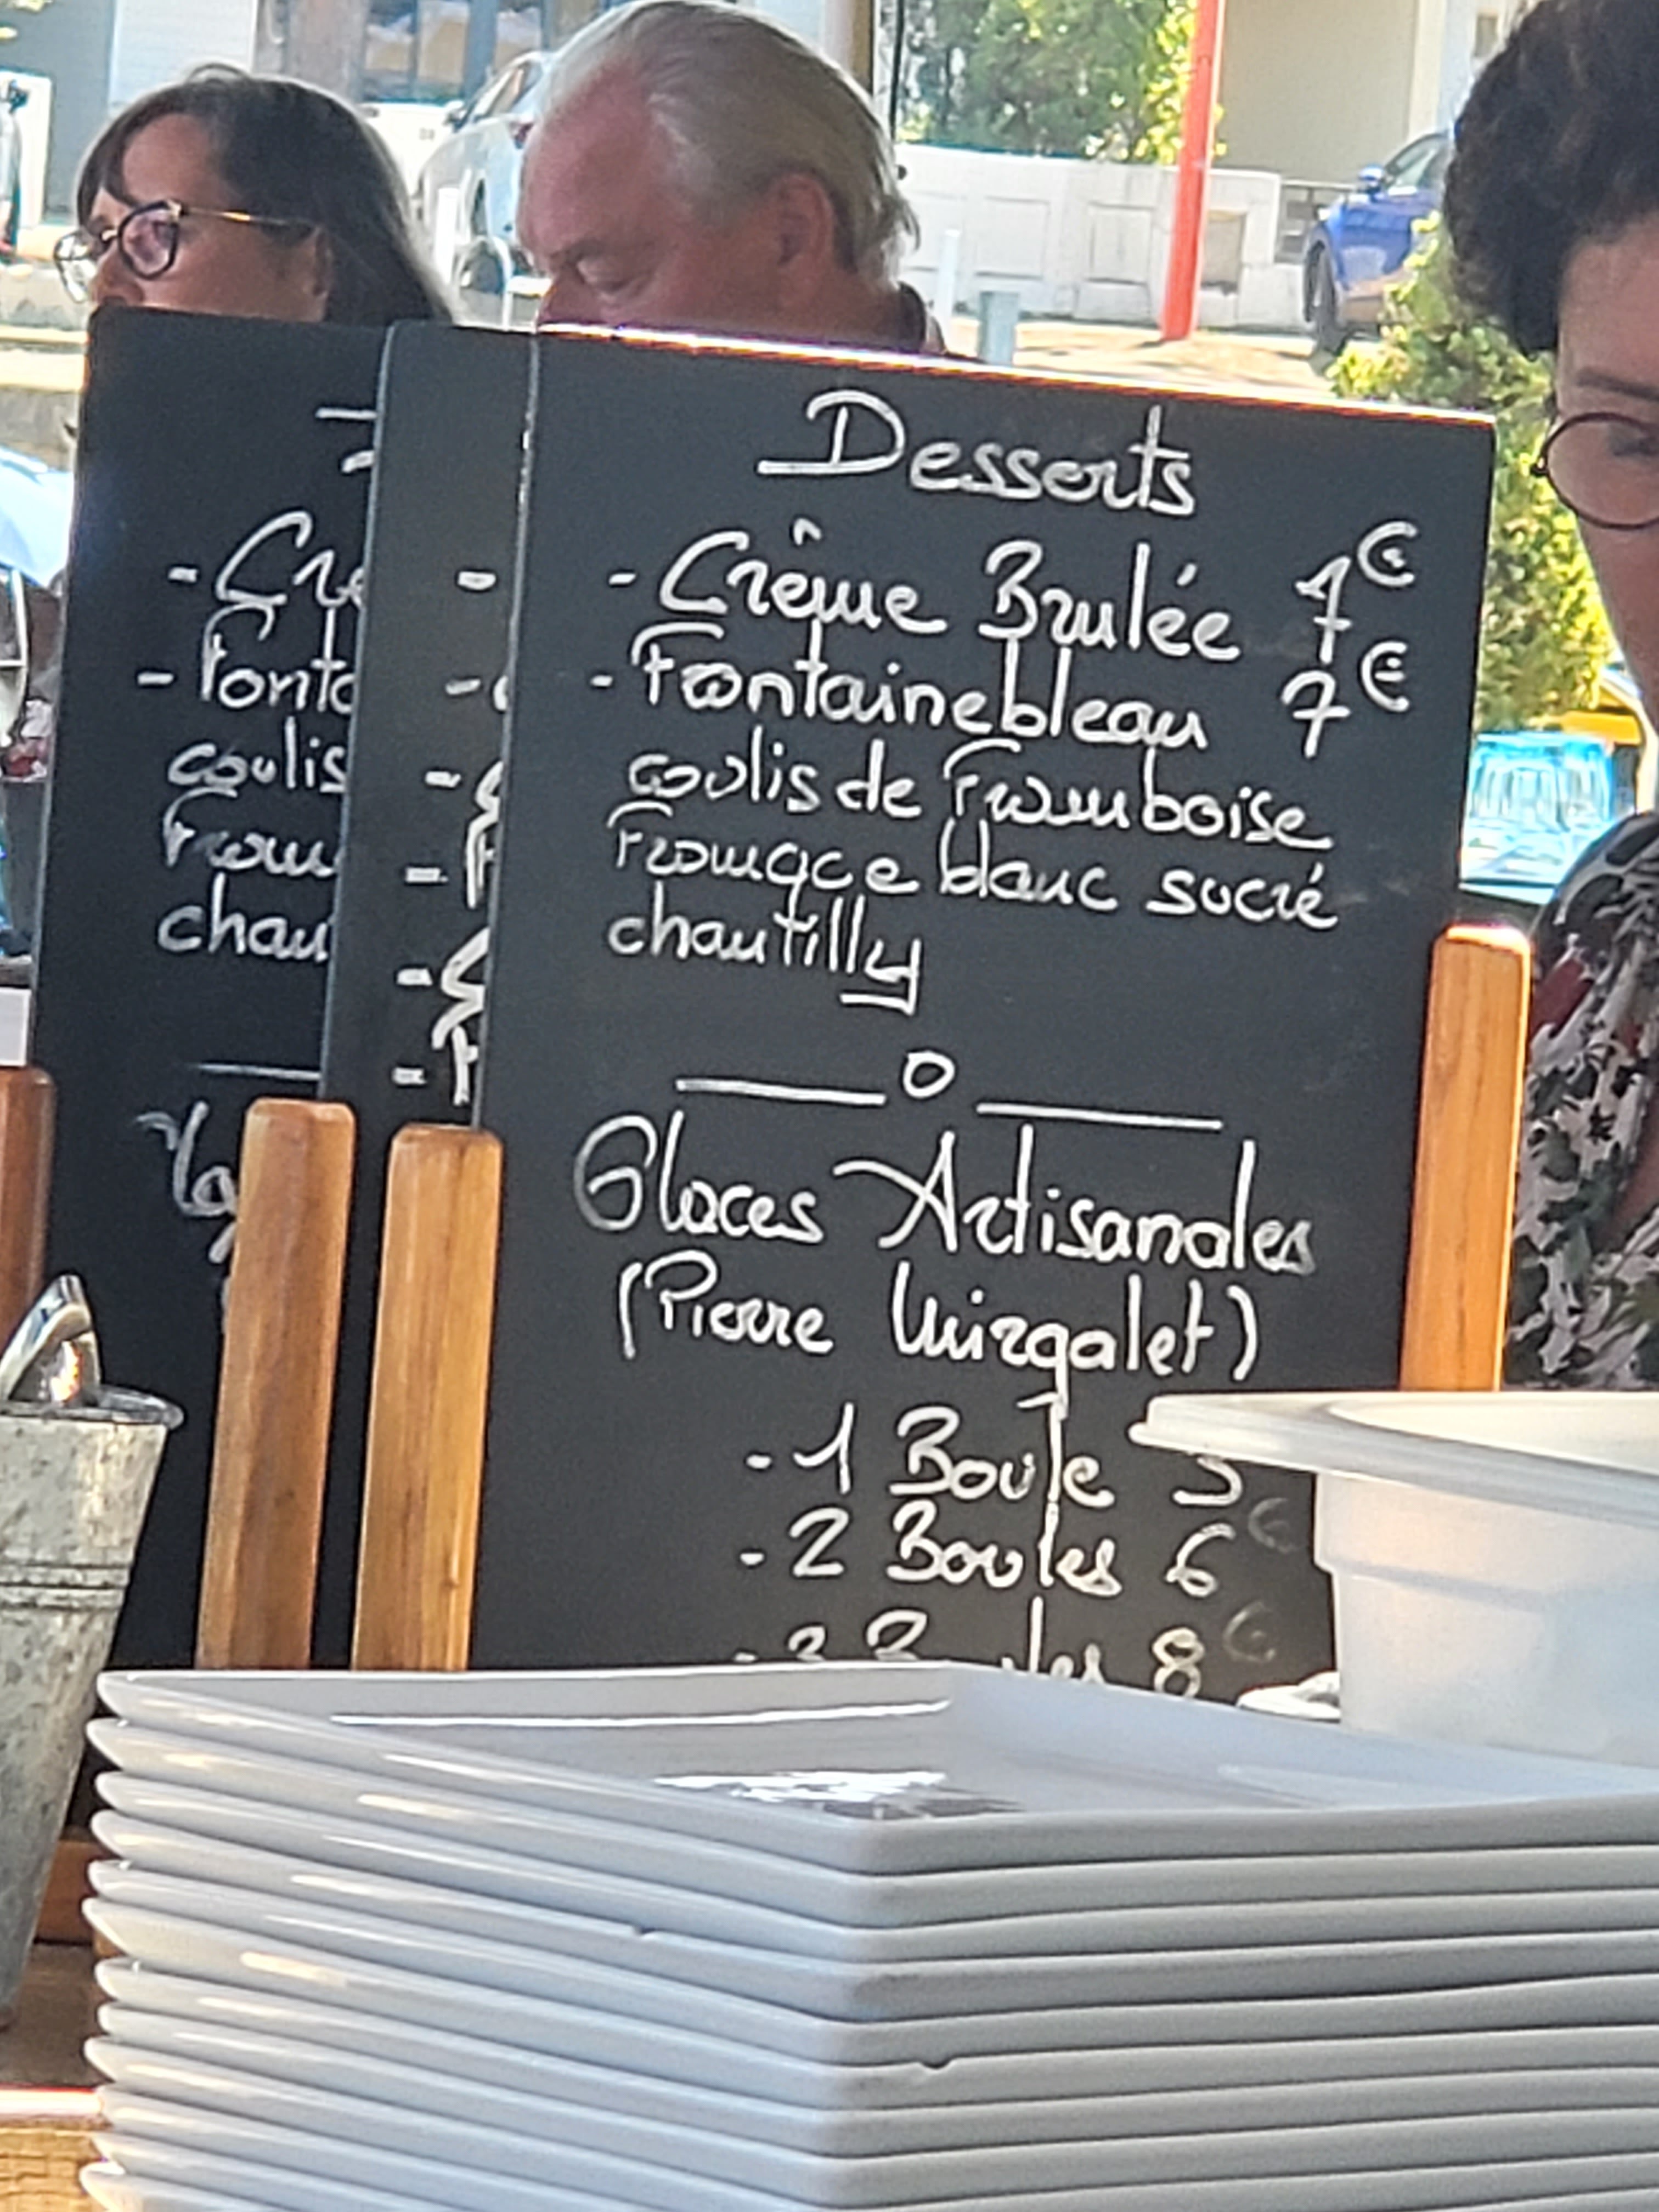 Desserts
- Crême Brulée 7€
- Fontainebleau 7€
coulis de Framboise
Fromage blanc sucré
chantilly
o
Glaces Artisanales
(Pierre Mirgalet)
- 1 Boule
- 2 Boules 6€
- 3 Boules 8€
- Cré
- Fonta
coulis
From
chan